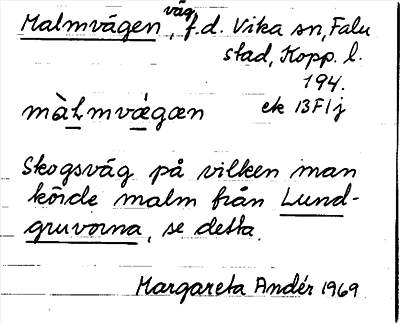 Malmvägen, väg, f.d. Vika sn, Falu
stad, Kopp. l.
194.
màɫmvǽgæn ek 13F1j
Skogsväg på vilken man
körde malm från Lund-
gruvorna, se detta.
Margareta Andér 1969